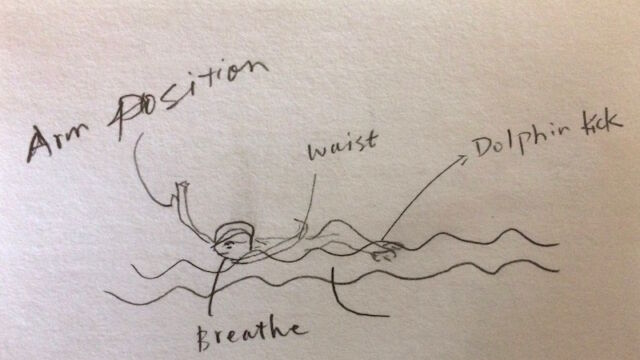 Arm position
waist
Dolphin kick
Breathe